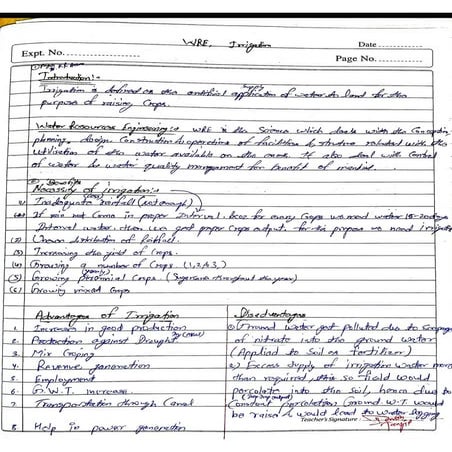 WRE, Irrigation
Date
Expt. No.
Page No.
Introduction :-
Irrigation is defined as the artificial application of water to land for the
purpose of raising Crops.
Water Resources Engineering :- WRE is the Science which deals with the Conception,
planning, design, Construction & operation of facilities & structure related with the
utilization of the water available on the earth. It also deal with Control
of water & water quality management for benefit of
Necessity of irrigation :-
Inadequate rainfall (not enough)
If rain not Come in proper Interval, for many Crops we need water 15-20 days
Interval water then we get proper Crops output, for this purpose we need irrigation
(2) Uneven distribution of Rainfall.
(3) Increasing the yield of Crops.
(4) Growing a number of Crops (1,2,4,3,)
(5) Growing perennial Crops (Sugarcane throughout the year)
(6) Growing mixed Crops
Advantages of Irrigation
1. Increase in good production
2. Protection against Drought
3. Mix Croping
4. Revenue generation
5. Employment
6. G.W.T. increase
7. Transportation through Canal
8. Help in power generation
Disadvantages
Ground water get polluted due to Seepage
of nitrate into the ground water
(Applied to Soil as fertilizer)
2) Excess supply of irrigation water more
than required, this so field would
percolate into the Soil, hence due to
Constant percolation Ground W.T. would
be raise & would lead to water logging
Teacher's Signature